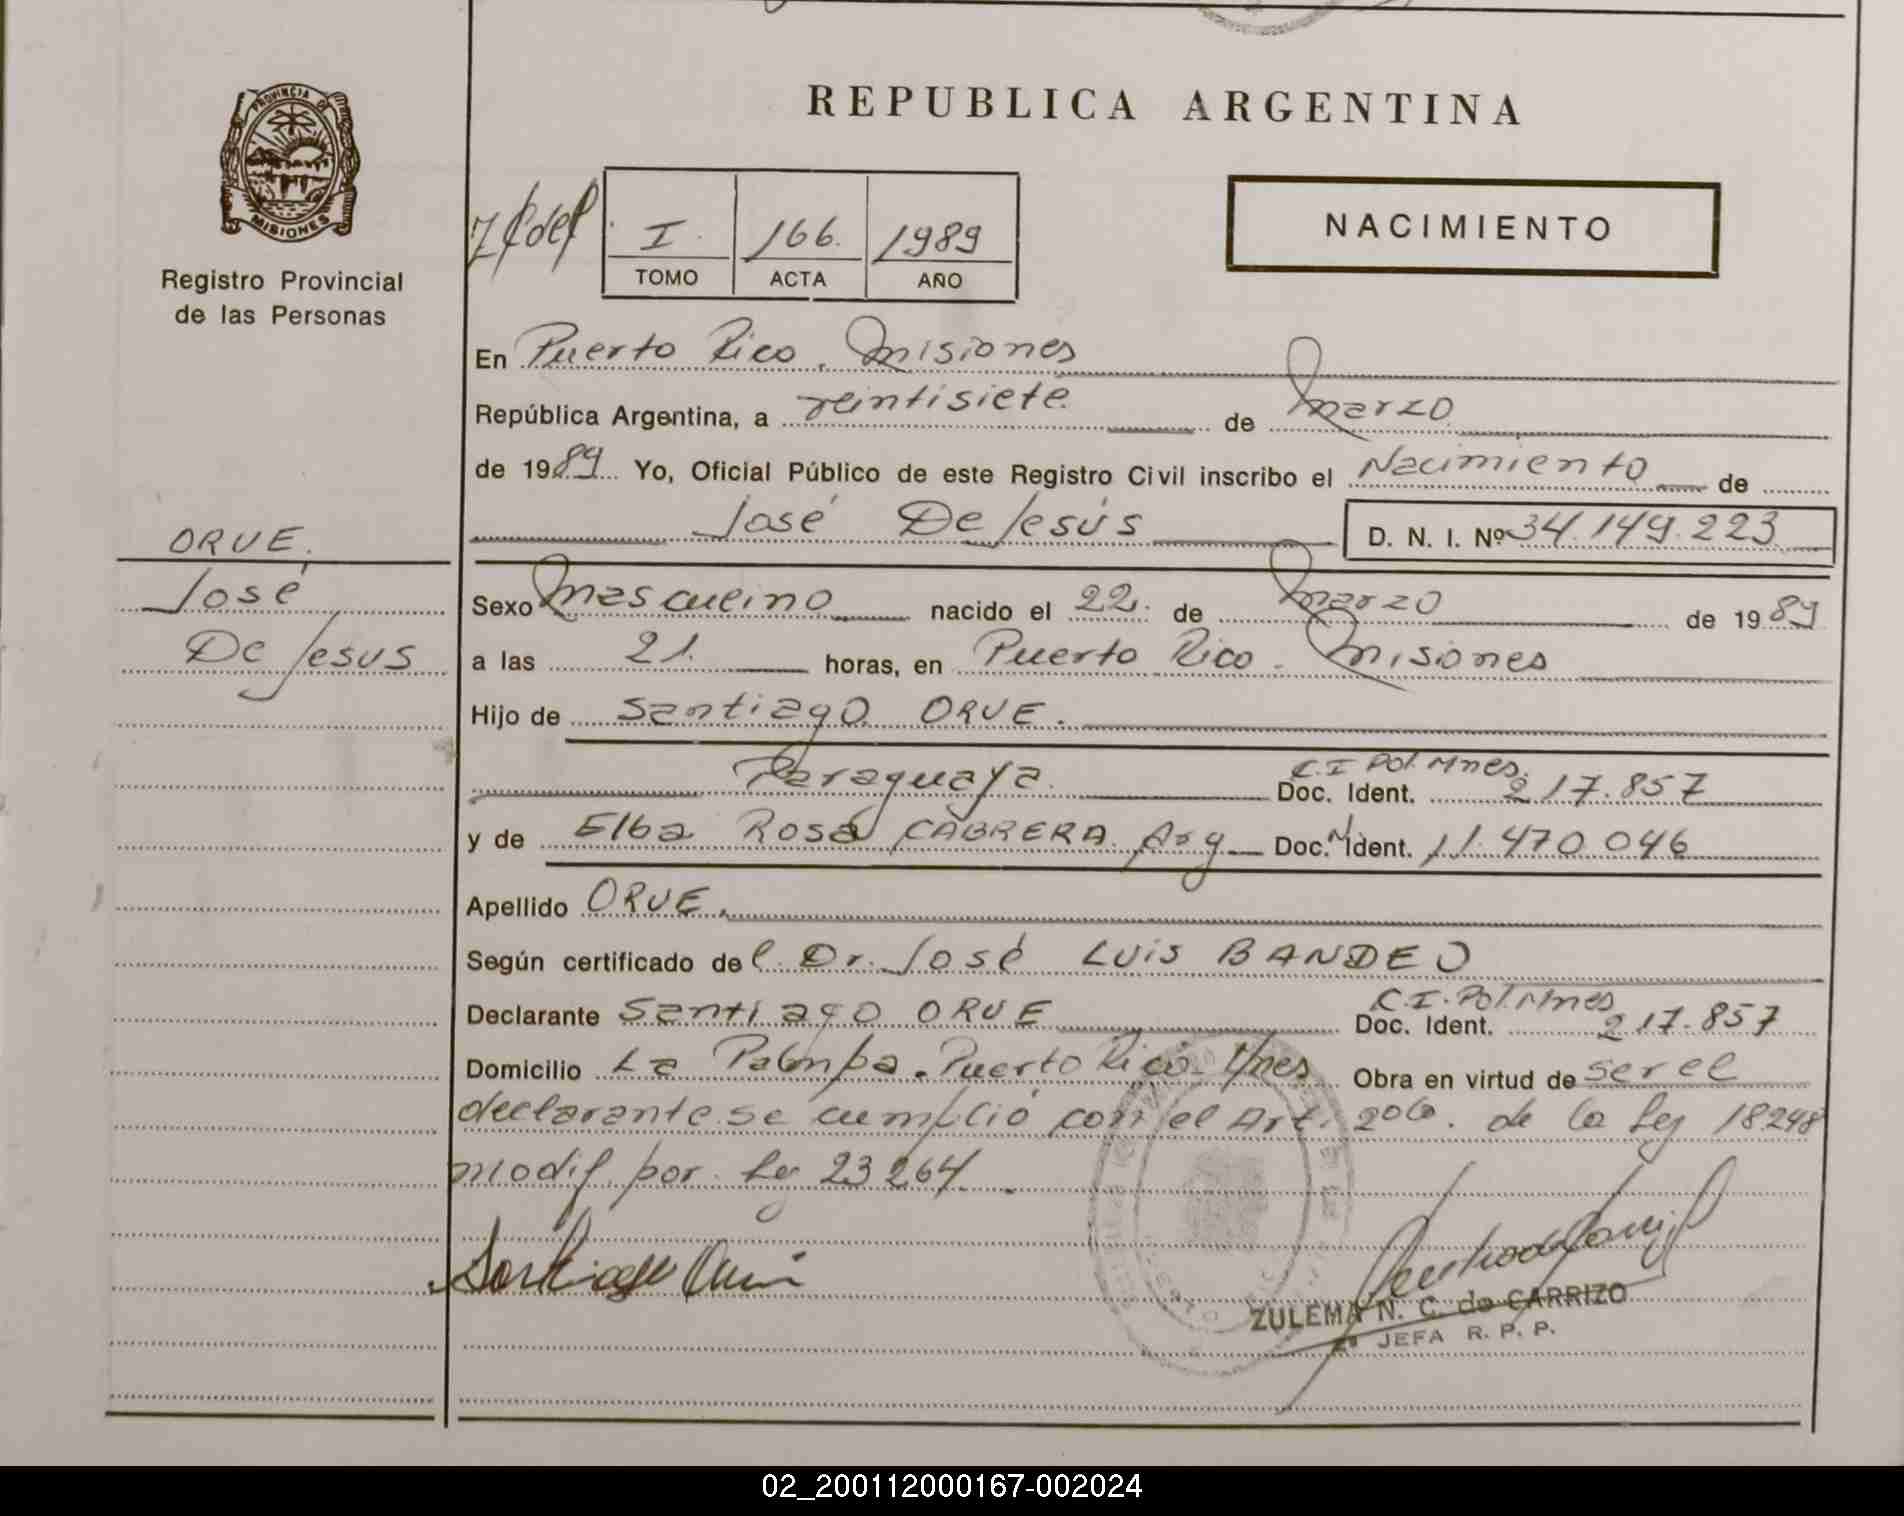 REPUBLICA ARGENTINA
PROVINCIA DE
MISIONES
Registro Provincial
de las Personas
I 166. 1989
TOMO ACTA AÑO
NACIMIENTO
En Puerto Rico. Misiones
República Argentina, a veintisiete de Marzo
de 1989 Yo, Oficial Público de este Registro Civil inscribo el Nacimiento de
José De Jesús D. N. I. Nº 34.149.223
ORUE.
José
De Jesus
Sexo Masculino nacido el 22. de Marzo de 1989
a las 21. horas, en Puerto Rico - Misiones
Hijo de Santiago ORUE.
Paraguaya. C.I Pol. Mnes. Doc. Ident. 217.857
y de Elba Rosa CABRERA. Arg Doc. N Ident. 11.470.046
Apellido ORUE.
Según certificado del Dr. José Luis BANDEO
Declarante Santiago ORUE C.I. Pol. Mnes Doc. Ident. 217.857
Domicilio La Pampa. Puerto Rico - Mnes Obra en virtud de ser el
declarante se cumplió con el Art. 2do. de la Ley 18248
modif. por Ley 23264.
ZULEMA N. C. de CARRIZO
JEFA R. P. P.
02_200112000167-002024